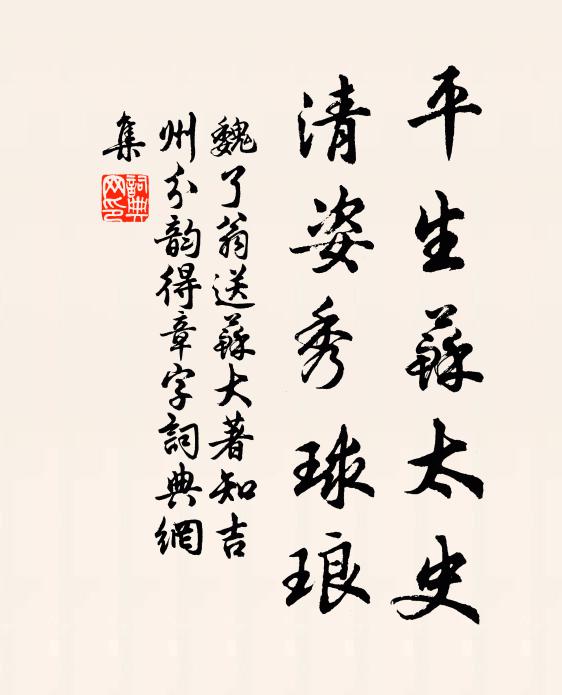 平生蘇太史
清姿秀球琅
魏了翁送蘇大著知吉
州分韵得章字詞典網
集
詞典網印